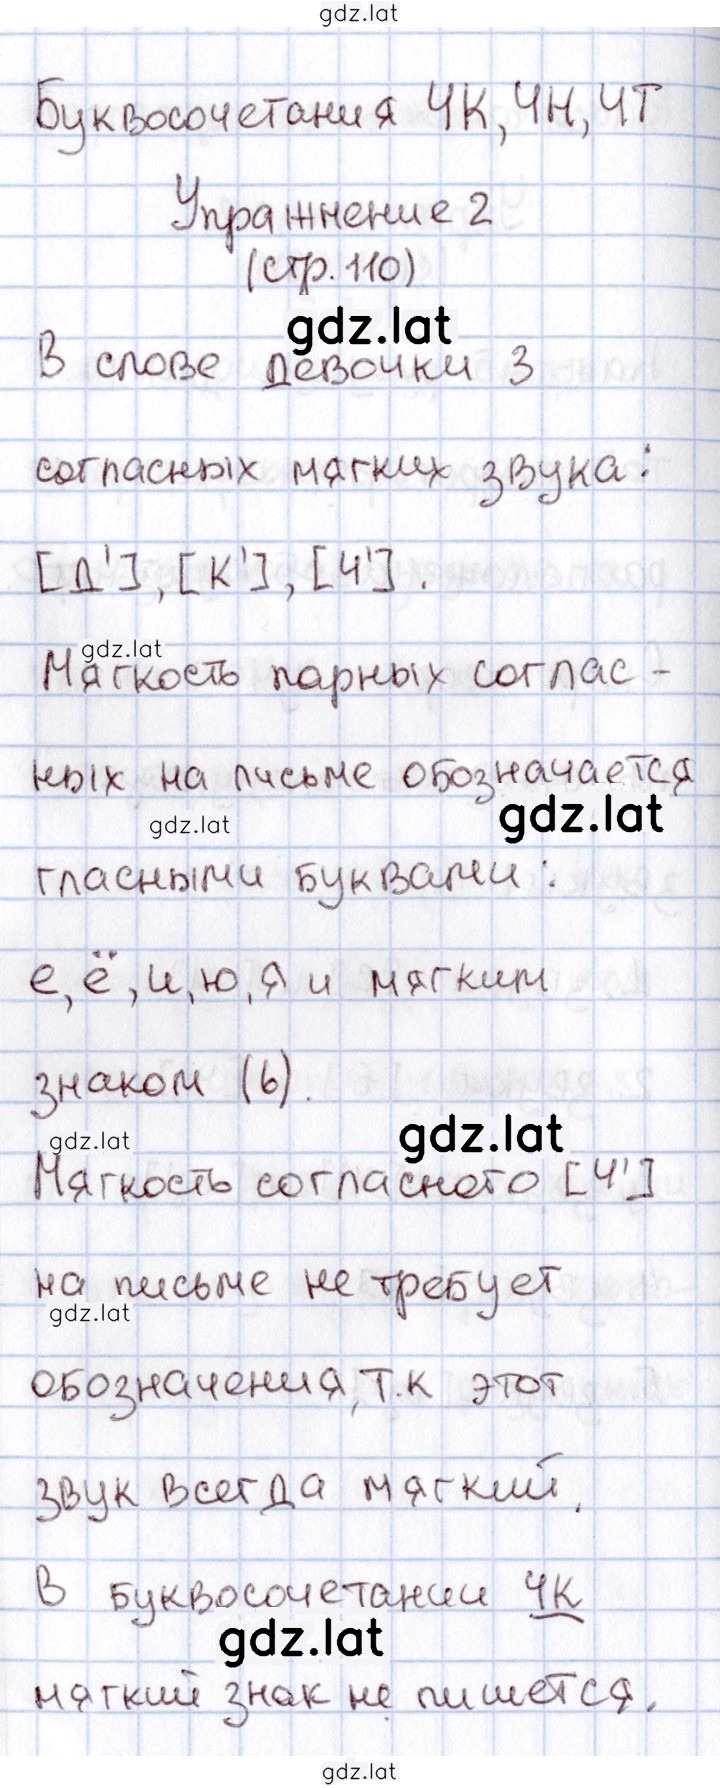 gdz.lat
Буквосочетания ЧК, ЧН, ЧТ
Упражнение 2
(стр. 110)
gdz.lat
В слове девочки 3
согласных мягких звука:
[д'], [к'], [ч'].
gdz.lat
Мягкость парных соглас-
ных на письме обозначается
gdz.lat
gdz.lat
гласными буквами:
е, ё, и, ю, я и мягким
знаком (ь).
gdz.lat
gdz.lat
Мягкость согласного [ч']
на письме не требует
gdz.lat
обозначения, т.к этот
звук всегда мягкий.
В буквосочетании чк
gdz.lat
мягкий знак не пишется.
gdz.lat